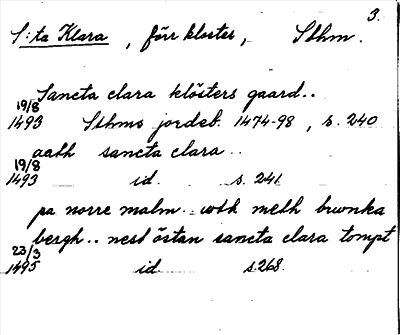 3.
S:ta Klara, förr kloster, Sthm.
Sancta clara klösters gaard..
19/8
1493 Sthms jordeb. 1474-98, s. 240
aath sancta clara..
19/8
1493 id. s. 241.
pa norre malm.. wtk meth brwnka
bergh.. nest östan sancta clara tompt
23/3
1495 id s. 268.